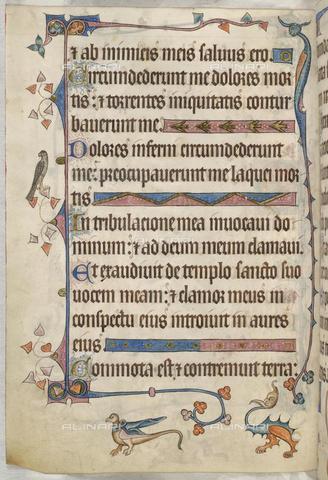 ⁊ ab inimicis meis saluus ero.
Circumdederunt me dolores mor
tis: ⁊ torrentes iniquitatis contur
bauerunt me.
Dolores inferni circumdederunt
me: preocupauerunt me laquei mor
tis.
In tribulacione mea inuocaui do
minum: ⁊ ad deum meum clamaui.
Et exaudiuit de templo sancto suo
uocem meam: ⁊ clamor meus in
conspectu eius introiuit in aures
eius.
Commota est ⁊ contremuit terra:
ALINARI
ALINARI
ALINARI
ALINARI